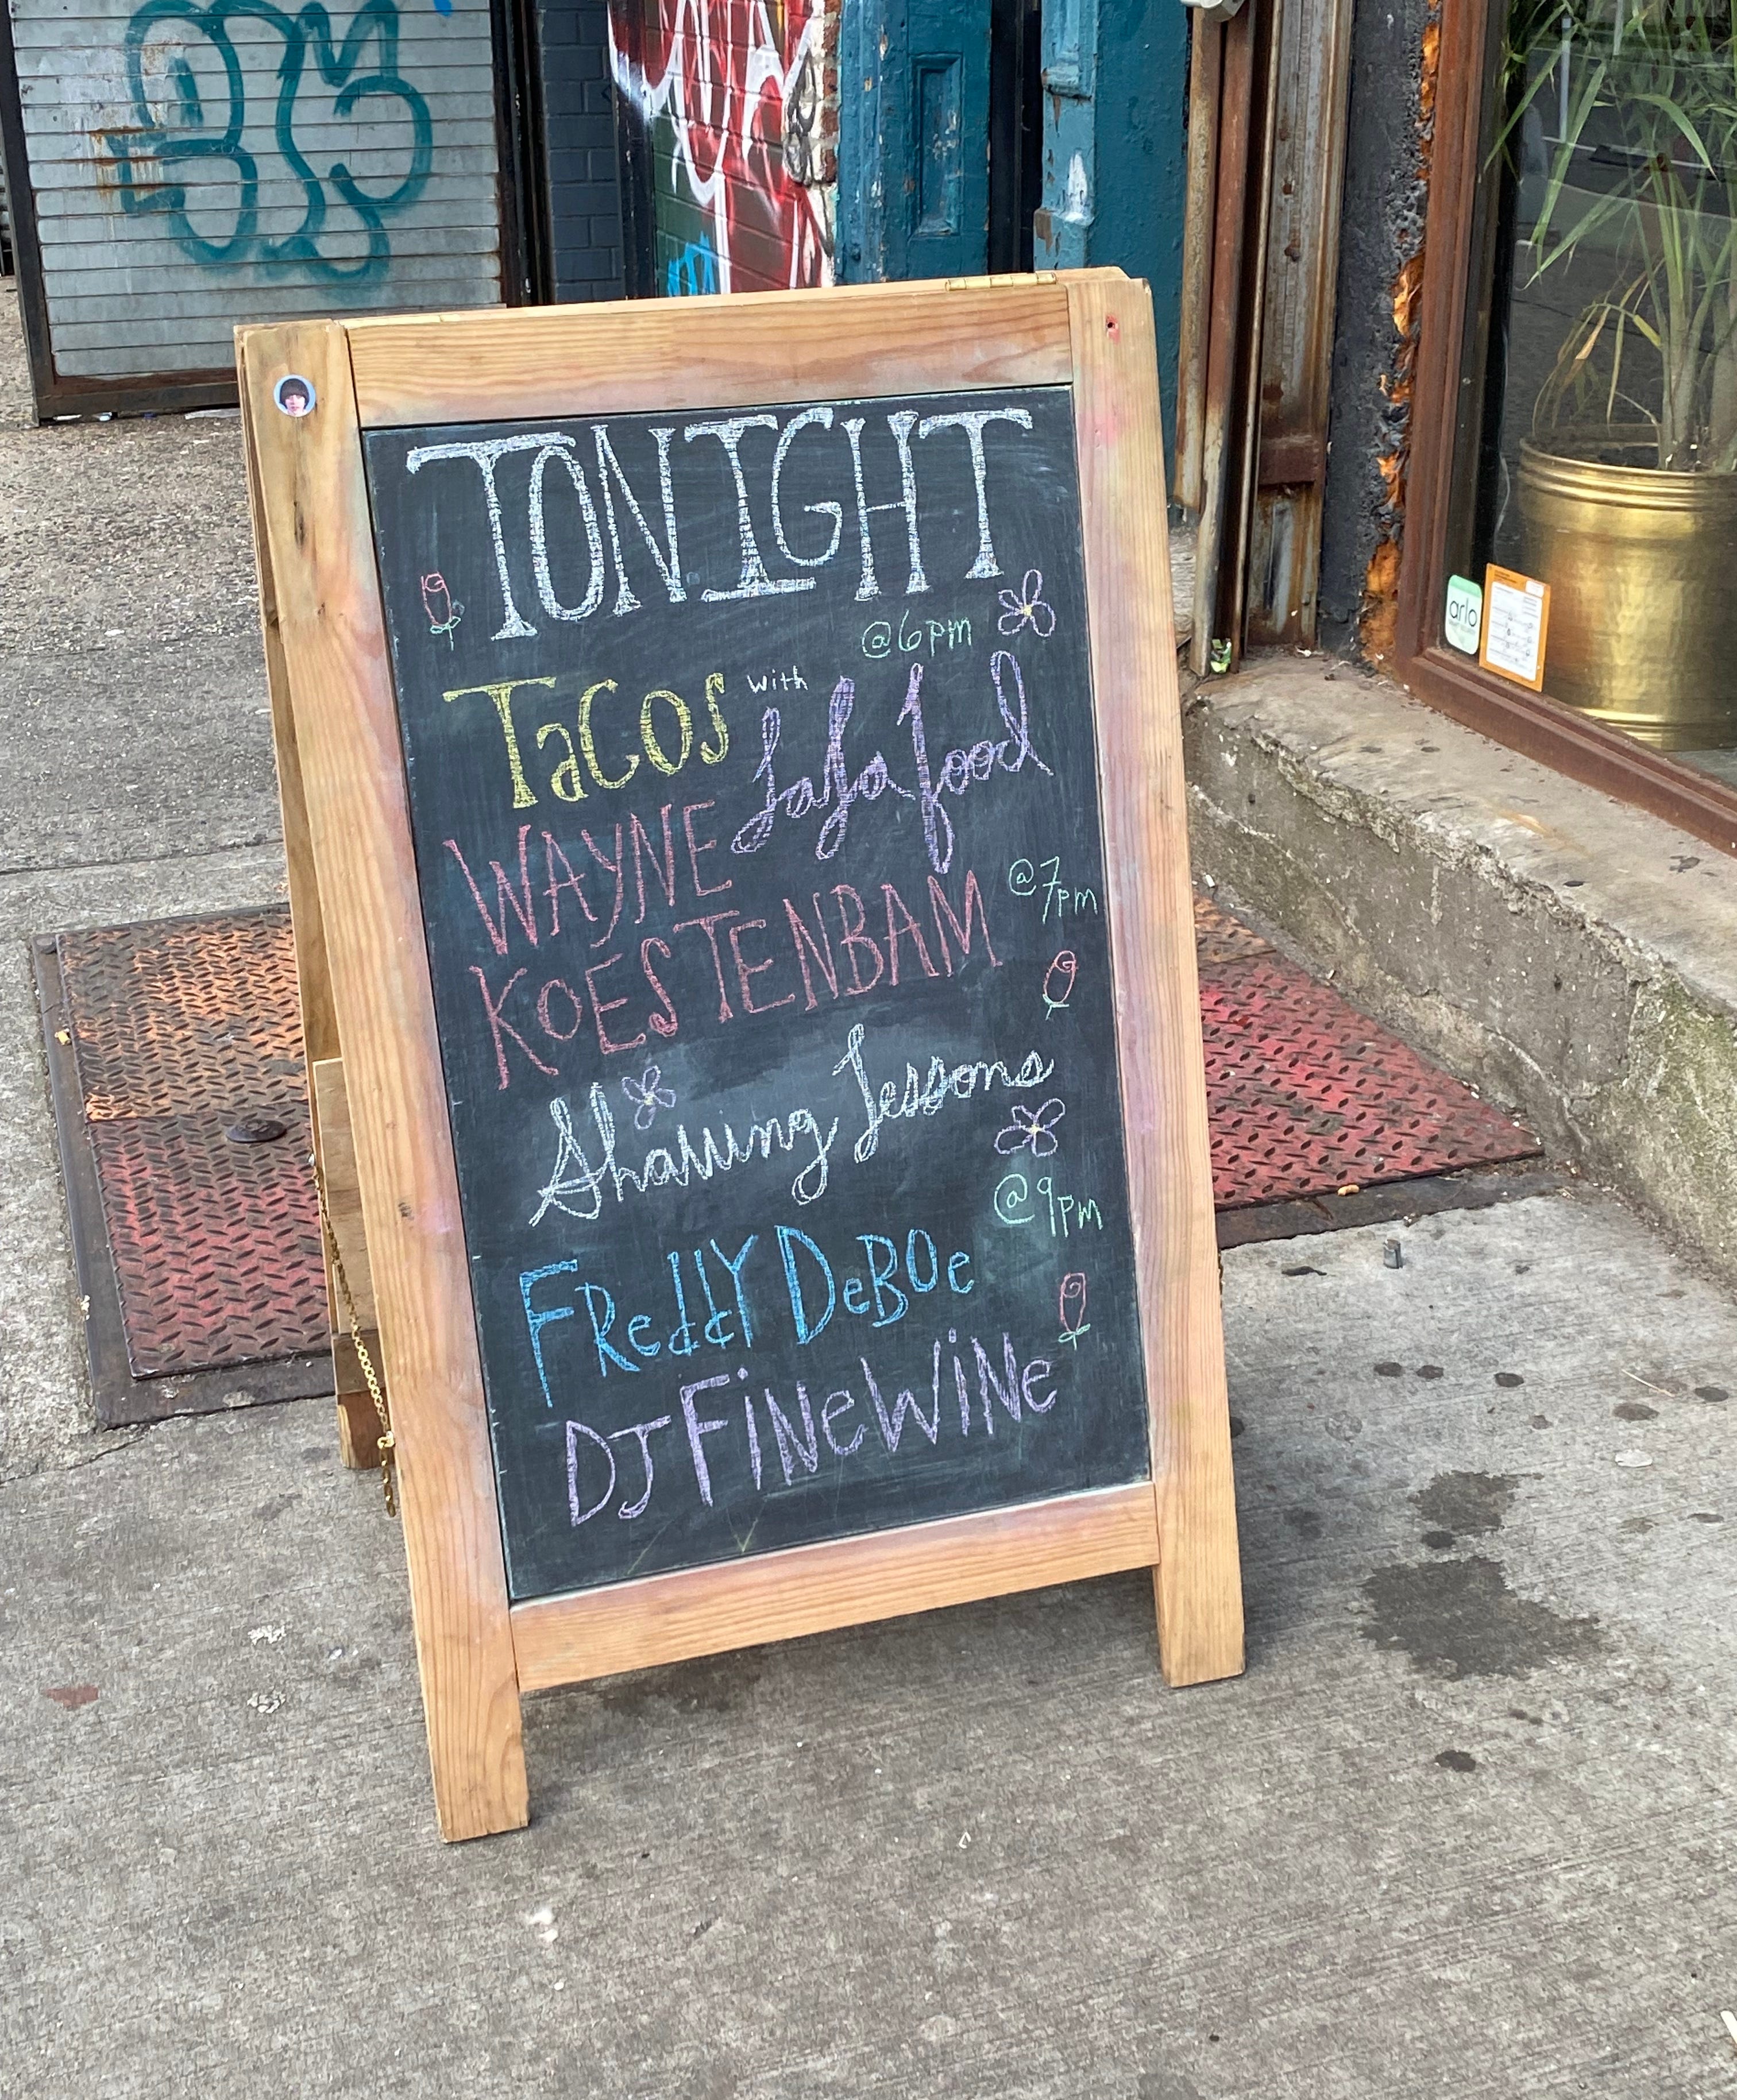 TONIGHT
@6pm
TaCOS with LaLa food
WAYNE
KOESTENBAM @7pm
Shaving Lessons
@9pm
FReddY DeBOe
DJ FiNeWiNe
arlo